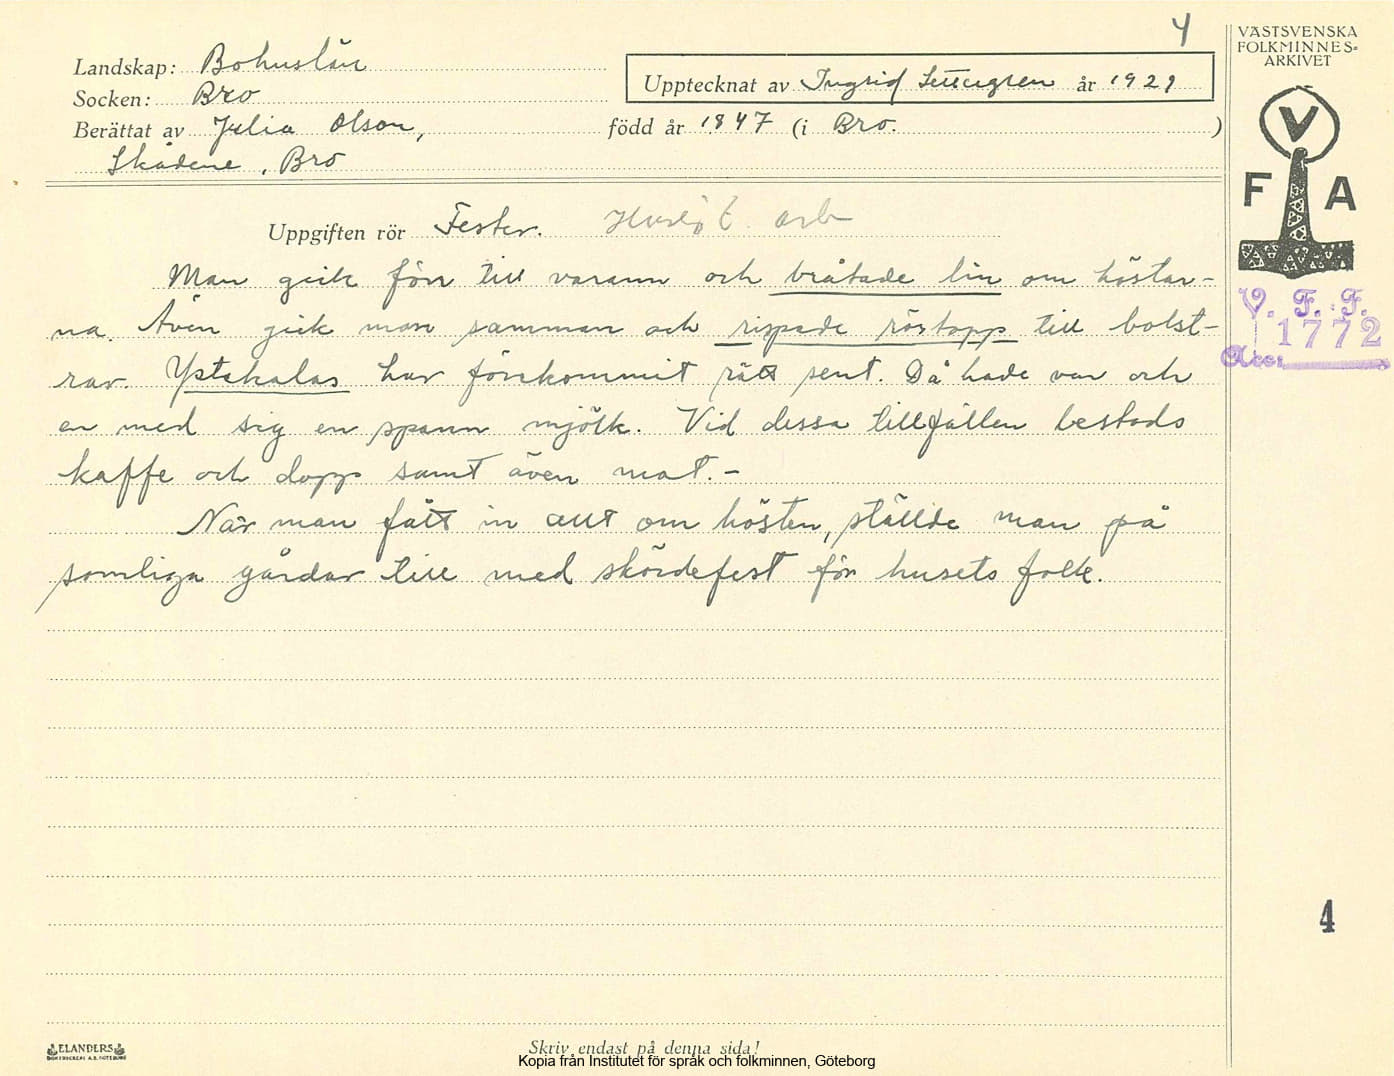 4
VÄSTSVENSKA
FOLKMINNES-
ARKIVET
Landskap: Bohuslän
Upptecknat av Ingrid år 1929
Socken: Bro
Berättat av Julia Olson, född år 1847 (i Bro. )
Skådene, Bro
V
F A
Uppgiften rör Fester. arb
Man gick förr till varann och bråtade lin om höstar-
na. Även gick man samman och rispade röstopp till bolst-
rar. Ystekalas har förekommit rätt sent. Då hade var och
en med sig en spann mjölk. Vid dessa tillfällen bestods
kaffe och dopp samt även mat.-
När man fått in allt om hösten, ställde man på
somliga gårdar till med skördefest för husets folk.
V. F. F.
1772
Acc.
4
ELANDERS
Skriv endast på denna sida!
Kopia från Institutet för språk och folkminnen, Göteborg